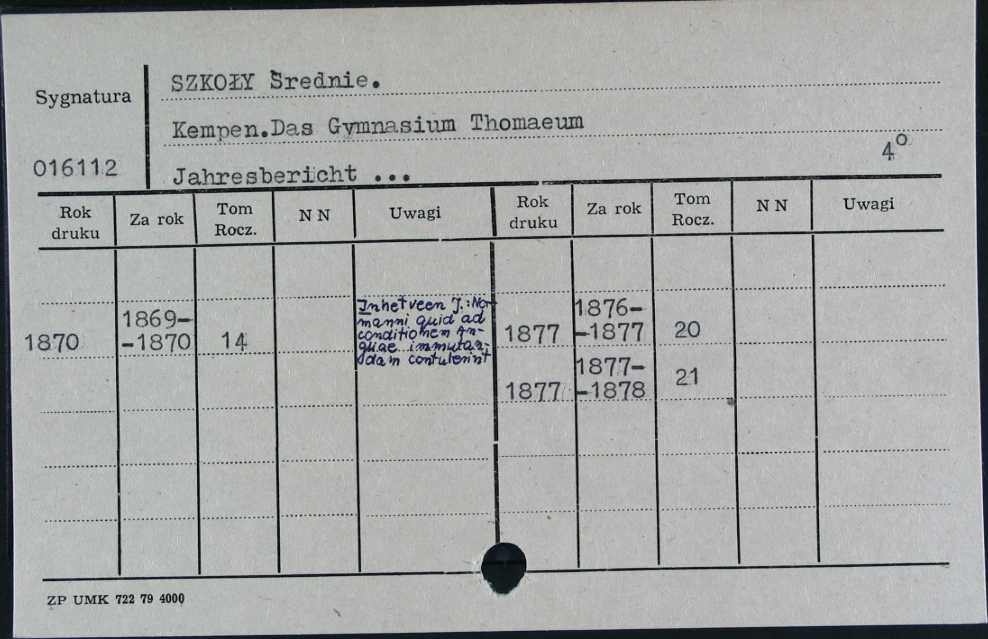 SZKOŁY Średnie.
Sygnatura
Kempen.Das Gymnasium Thomaeum
4°
016112
Jahresbericht ...
Rok druku Za rok Tom Rocz. N N Uwagi Rok druku Za rok Tom Rocz. N N Uwagi
Inhetveen J.:No-
manni quid ad
conditionem An-
gliae immutan-
dam contulerint
1870 1869-
-1870 14
1877 1876-
-1877 20
1877 1877-
-1878 21
ZP UMK 722 79 4000